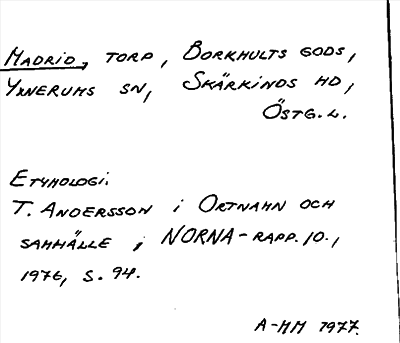 Madrid, torp, Borkhults gods,
Yxnerums sn, Skärkinds hd,
Östg.l.
Etymologi:
T. Andersson i Ortnamn och
samhälle, NORNA-rapp. 10.,
1976, s. 94.
A-MM 1977.